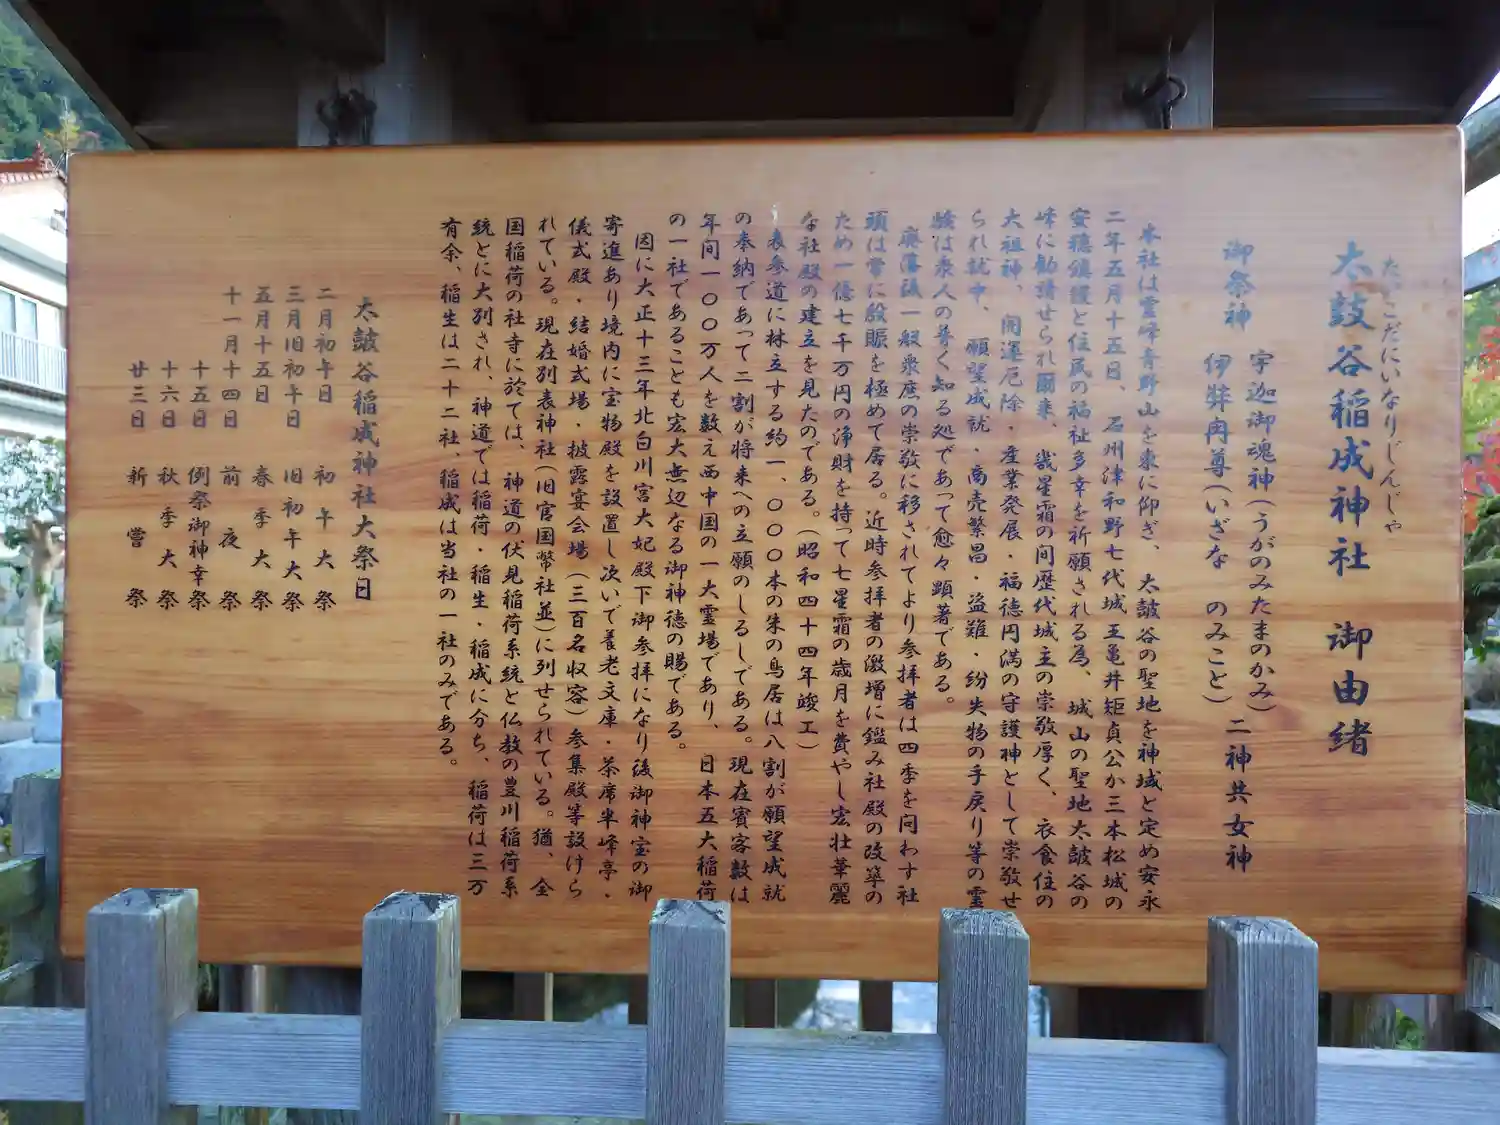 たいこだにいなりじんじゃ
太鼓谷稲成神社 御由緒
御祭神
宇迦御魂神(うがのみたまのかみ)
伊弉冉尊(いざな のみこと)
二神共女神
本社は霊峰青野山を東に仰ぎ、太鼓谷の聖地を神域と定め安永
二年五月十五日、石州津和野七代城主亀井矩貞公か三本松城の
安穏鎮護と住民の福祉多幸を祈願される為、城山の聖地太鼓谷の
峰に勧請せられ爾来、幾星霜の間歴代城主の崇敬厚く、衣食住の
大祖神、開運厄除・産業発展・福徳円満の守護神として崇敬せ
られ就中、願望成就・商売繁昌・盗難・紛失物の手戻り等の霊
験は衆人の普く知る処であって愈々顕著である。
廃藩後一般衆庶の崇敬に移されてより参拝者は四季を问わす社
頭は常に殷賑を極めて居る。近時参拝者の激増に鑑み社殿の改築の
ため一億七千万円の浄財を持って七星霜の歳月を費やし宏壮華麗
な社殿の建立を見たのである。(昭和四十四年竣工)
表参道に林立する約一、〇〇〇本の朱の鳥居は八割が願望成就
の奉納であって二割が将来への立願のしるしである。現在賓客数は
年间一〇〇万人を数え西中国の一大霊場であり、日本五大稲荷
の一社であることも宏大無辺なる御神徳の賜である。
因に大正十三年北白川宮大妃殿下御参拝になり後御神宝の御
寄進あり境内に宝物殿を設置し次いで養老文庫・茶席半峰亭・
儀式殿・結婚式場・披露宴会場(三百名収容)参集殿等設けら
れている。現在別表神社(旧官国幣社並)に列せられている。猶、全
国稲荷の社寺に於ては、神道の伏見稲荷系統と仏教の豊川稲荷系
統とに大別され、神道では稲荷・稲生・稲成に分ち、稲荷は三万
有余、稲生は二十二社、稲成は当社の一社のみである。
太皷谷稲成神社大祭日
二月初午日 初午大祭
三月旧初午日 旧初午大祭
五月十五日 春季大祭
十一月十四日 前夜祭
十五日 例祭御神幸祭
十六日 秋季大祭
廿三日 新嘗祭